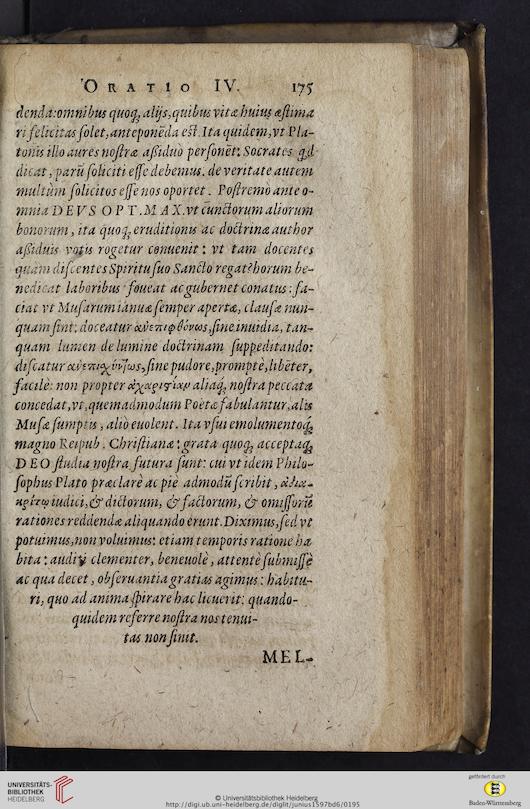 ORATIO IV. 175
denda: omnibus quoq;, alijs, quibus vitæ huius æstima
ri felicitas solet, anteponēda est. Ita quidem, vt Pla-
tonis illo aures nostræ aßiduò personēt: Socrates qd
dicat, parū soliciti esse debemus. de veritate autem
multùm solicitos esse nos oportet. Postremò ante o-
mnia DEVS OPT. MAX. vt cunctorum aliorum
bonorum, ita quoq, eruditionis ac doctrinæ author
aßiduis votis rogetur conuenit: vt tam docentes
quàm discentes Spiritu suo Sancto regat? horum be-
nedicat laboribus foueat ac gubernet conatus: fa-
ciat vt Musarum ianuæ semper apertæ, clausæ nun-
quam sint: doceatur ἀνεπιφθόνως, sine inuidia, tan-
quam lumen de lumine doctrinam suppeditando:
discatur sine pudore, promptè, libēter,
facilè: non propter aliaq, nostra peccata
concedat, vt, quemadmodum Poëtæ fabulantur, alis
Musæ sumptis, aliò euolent. Ita vsui emolumentoq,
magno Reipub. Christianæ: grata quoq, acceptaq,
DEO studia nostra futura sunt: cui vt idem Philo-
sophus Plato præclarè ac piè admodū scribit, ἀδια-
κρίτῳ iudici, & dictorum, & factorum, & omissorū
rationes reddendæ aliquando erunt. Diximus, sed vt
potuimus, non voluimus: etiam temporis ratione ha
bita: auditi clementer, beneuolè, attentè submissè
ac qua decet, obseruantia gratias agimus: habitu-
ri, quo ad anima spirare hac licuerit: quando-
quidem referre nostra nos tenui-
tas non sinit.
MEL-
UNIVERSITÄTS-
BIBLIOTHEK
HEIDELBERG
© Universitätsbibliothek Heidelberg
http://digi.ub.uni-heidelberg.de/diglit/junius1597bd6/0195
gefördert durch
Baden-Württemberg